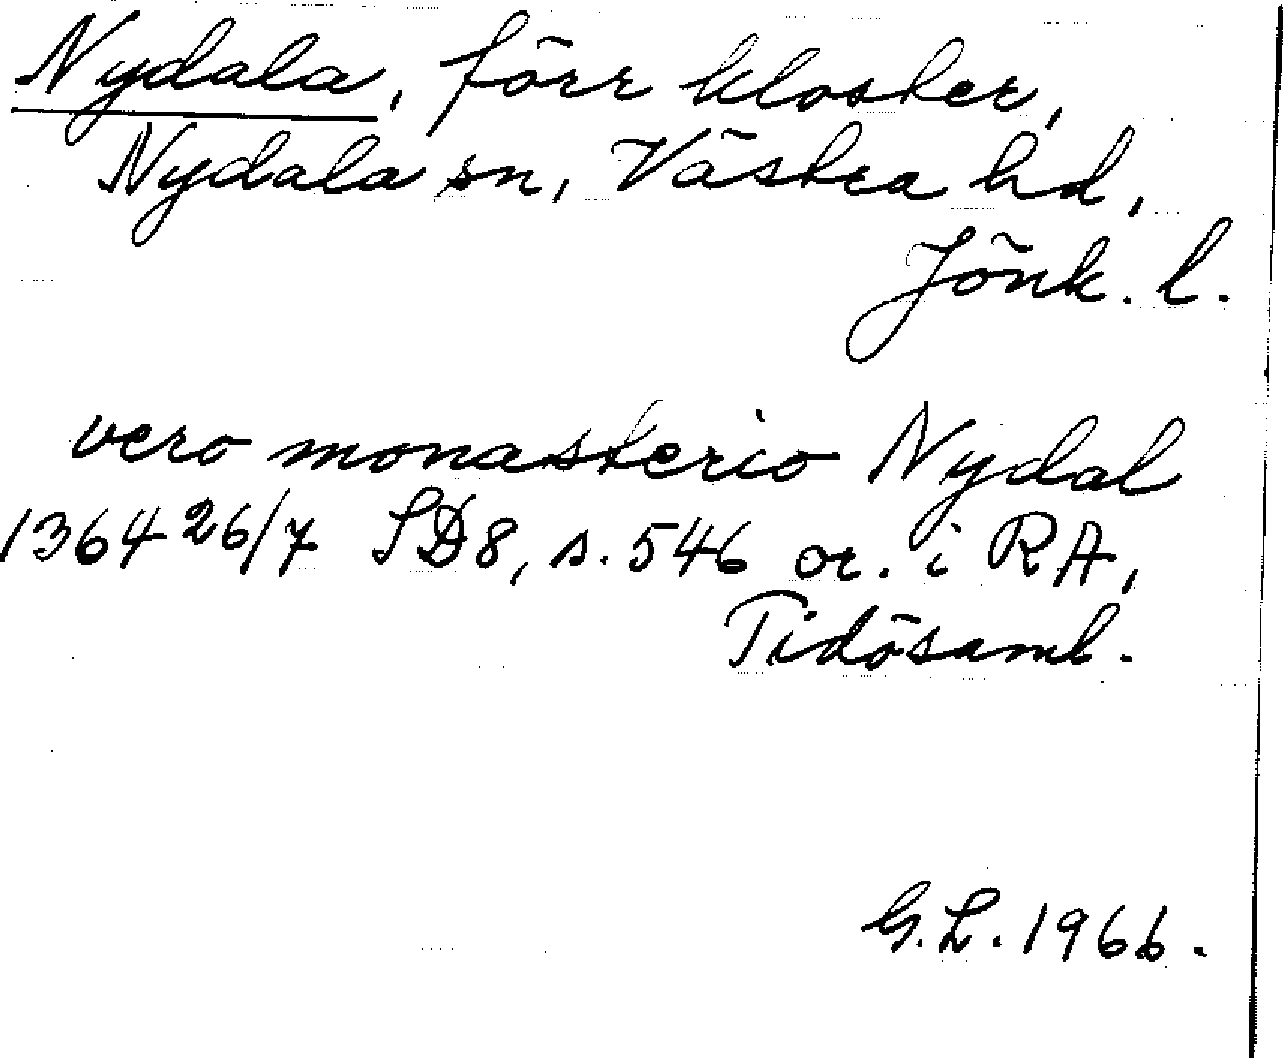 Nydala, förr kloster,
Nydala sn, Västra hd,
Jönk. l.
vero monasterio Nydal
1364 26/7 SD8, s. 546 or. i RA,
Tidösaml.
G.L. 1966.